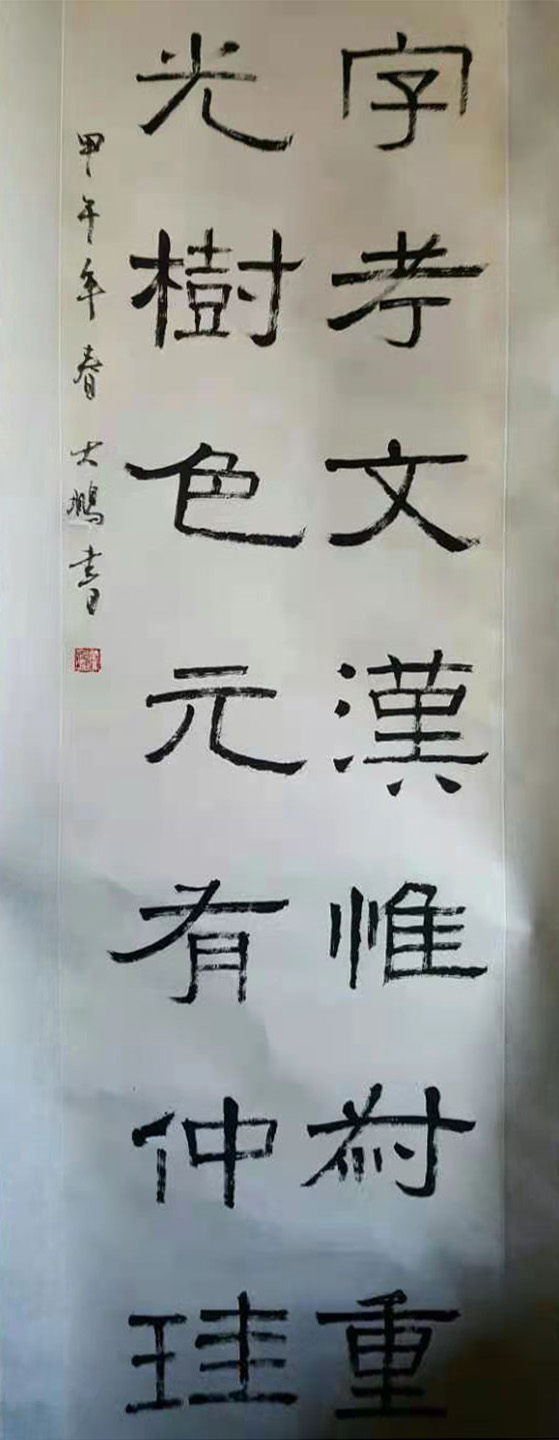 字考文漢惟叔重
光樹色元有仲珪
甲午年春 大鵬書